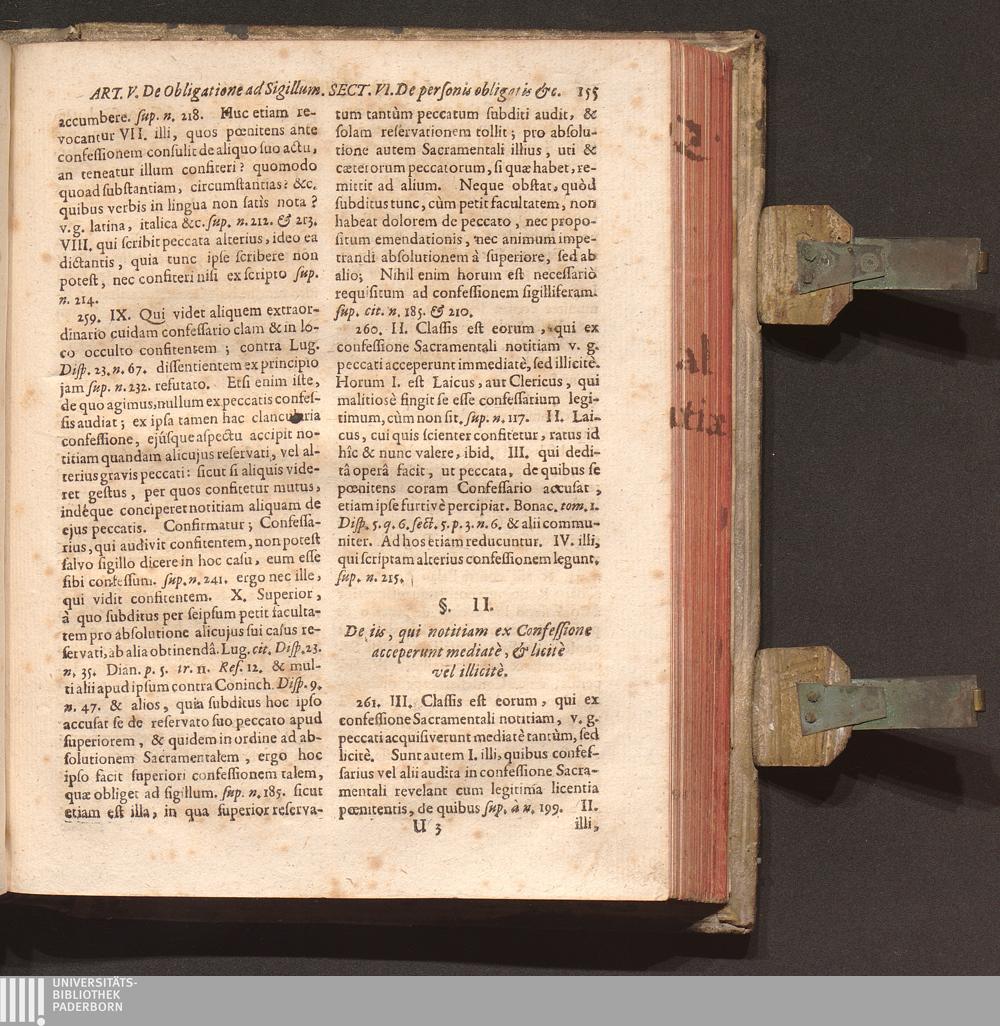 ART. V. De Obligatione ad Sigillum. SECT. VI. De personis obligatis &c. 155
accumbere. sup. n. 218. Huc etiam re-
vocantur VII. illi, quos pœnitens ante
confessionem consulit de aliquo suo actu,
an teneatur illum confiteri? quomodo
quoad substantiam, circumstantias? &c.
quibus verbis in lingua non satìs nota?
v. g. latina, italica &c. sup. n. 212. & 213.
VIII. qui scribit peccata alterius, ideo ea
dictantis, quia tunc ipse scribere non
potest, nec confiteri nisi ex scripto sup.
n. 214.
259. IX. Qui videt aliquem extraor-
dinario cuidam confessario clam & in lo-
co occulto confitentem; contra Lug.
Disp. 23. n. 67. dissentientem ex principio
jam sup. n. 232. refutato. Etsi enim iste,
de quo agimus, nullum ex peccatis confes-
sis audiat; ex ipsa tamen hac clancularia
confessione, ejúsque aspectu accipit no-
titiam quandam alicujus reservati, vel al-
terius gravis peccati: sicut si aliquis vide-
ret gestus, per quos confitetur mutus,
indéque conciperet notitiam aliquam de
ejus peccatis. Confirmatur; Confessa-
rius, qui audivit confitentem, non potest
salvo sigillo dicere in hoc casu, eum esse
sibi confessum. sup. n. 241. ergo nec ille,
qui vidit confitentem. X. Superior,
à quo subditus per seipsum petit faculta-
tem pro absolutione alicujus sui casus re-
servati, ab alia obtinendâ. Lug. cit. Disp. 23.
n. 35. Dian. p. 5. tr. 11. Res. 12. & mul-
ti alii apud ipsum contra Coninch. Disp. 9.
n. 47. & alios, quia subditus hoc ipso
accusat se de reservato suo peccato apud
superiorem, & quidem in ordine ad ab-
solutionem Sacramentalem, ergo hoc
ipso facit superiori confessionem talem,
quæ obliget ad sigillum. sup. n. 185. sicut
etiam est illa, in qua superior reserva-
tum tantùm peccatum subditi audit, &
solam reservationem tollit; pro absolu-
tione autem Sacramentali illius, uti &
cæterorum peccatorum, si quæ habet, re-
mittit ad alium. Neque obstat, quòd
subditus tunc, cùm petit facultatem, non
habeat dolorem de peccato, nec propo-
situm emendationis, nec animum impe-
trandi absolutionem à superiore, sed ab
alio; Nihil enim horum est necessariò
requisitum ad confessionem sigilliferam.
sup. cit. n. 185. & 210.
260. II. Classis est eorum, qui ex
confessione Sacramentali notitiam v. g.
peccati acceperunt immediatè, sed illicitè.
Horum I. est Laicus, aut Clericus, qui
malitiosè fingit se esse confessarium legi-
timum, cùm non sit. sup. n. 117. II. Lai-
cus, cui quis scienter confitetur, ratus id
hîc & nunc valere, ibid. III. qui dedi-
tâ operâ facit, ut peccata, de quibus se
pœnitens coram Confessario accusat,
etiam ipse furtivè percipiat. Bonac. tom. 1.
Disp. 5. q. 6. sect. 5. p. 3. n. 6. & alii commu-
niter. Ad hos etiam reducuntur. IV. illi,
qui scriptam alterius confessionem legunt.
sup. n. 215.
§. II.
De iis, qui notitiam ex Confessione
acceperunt mediatè, & licitè
vel illicitè.
261. III. Classis est eorum, qui ex
confessione Sacramentali notitiam, v. g.
peccati acquisiverunt mediatè tantùm, sed
licitè. Sunt autem I. illi, quibus confes-
sarius vel alii audita in confessione Sacra-
mentali revelant cum legitima licentia
pœnitentis, de quibus sup. à n. 199. II.
U 3 illi,
UNIVERSITÄTS-
BIBLIOTHEK
PADERBORN